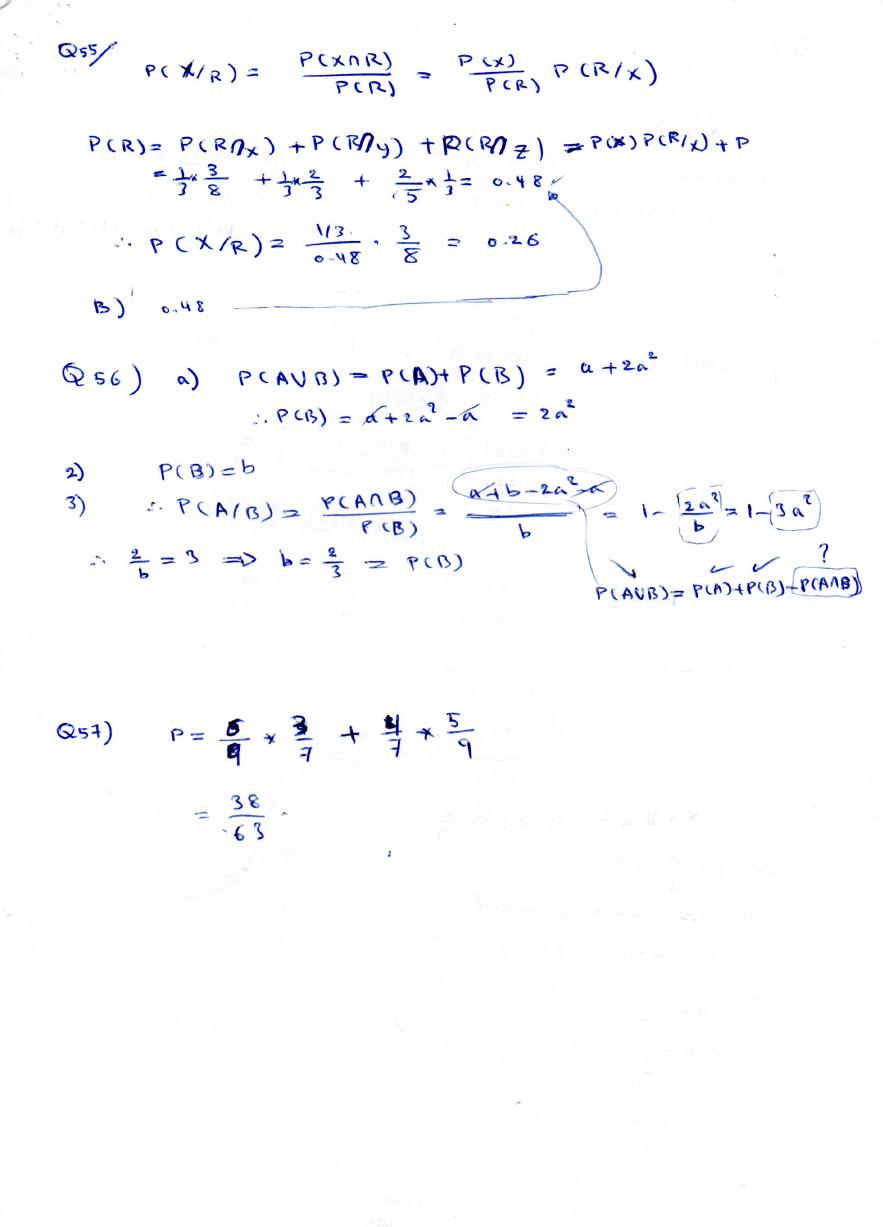 Q55/
P(X/R) = P(X∩R)/P(R) = P(X)/P(R) P(R/X)
P(R) = P(R∩x) + P(R∩y) + P(R∩z) = P(X)P(R/X) + P
= 1/3 * 3/8 + 1/3 * 2/3 + 2/5 * 1/3 = 0.48
∴ P(X/R) = 1/3 / 0.48 · 3/8 = 0.26
B) 0.48
Q56) a) P(A∪B) = P(A) + P(B) = a + 2a²
∴ P(B) = a + 2a² - a = 2a²
2) P(B) = b
3) ∴ P(A/B) = P(A∩B)/P(B) = (a + b - 2a² - a)/b = 1 - 2a²/b = 1 - 3a²
∴ 2/b = 3 ⇒ b = 2/3 = P(B)
?
P(A∪B) = P(A) + P(B) - P(A∩B)
Q57) P = 6/9 * 3/7 + 4/7 * 5/9
= 38/63